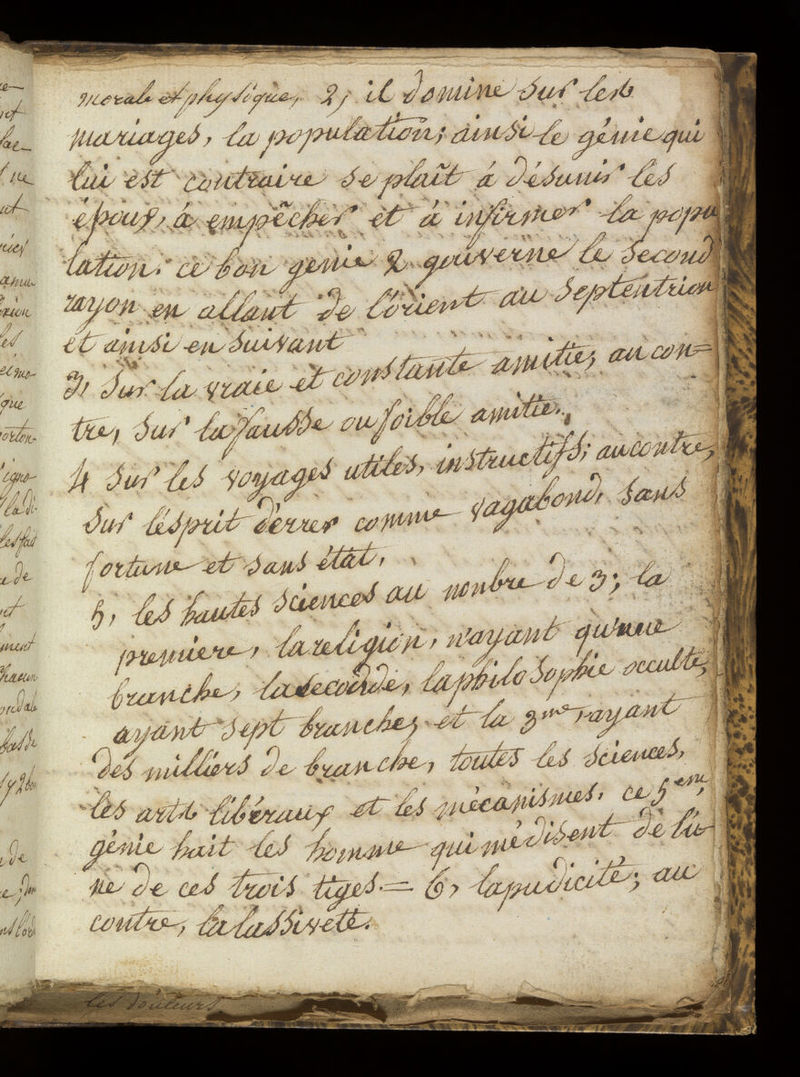 morale et physique, 2, il domine sur les
mariages, la population; ainsi le génie qui
lui est contraire se plaît à désunir les
époux, à empêcher et à infirmer la popu
lation. ce bon genie 2 gouverne le second
rayon en allant de l'orient au Septentrion
et ainsi en suivant
3, Sur la vraie et constante amitie, au con=
tre, Sur la fausse ou foible amitie.,
4 Sur les voyages utiles, instructifs; au contre,
Sur l'ésprit d'errer comme vagabond, sans
fortune et sans état,
5, les hautes Sciences au nonbre de 3; la
premiere, la religion, n'ayant qu'une
branche, la seconde, la philosophie occulte,
ayant sept branches et la 3me, ayant
des milliers de branche, toutes les sciences,
les arts libéraux et les mécanismes, ce 5em,
génie hait les homme qui médisent de l'u
ne de ces trois tiges.= 6, la pudicité; au
contre, la lassiveté.
les douleurs